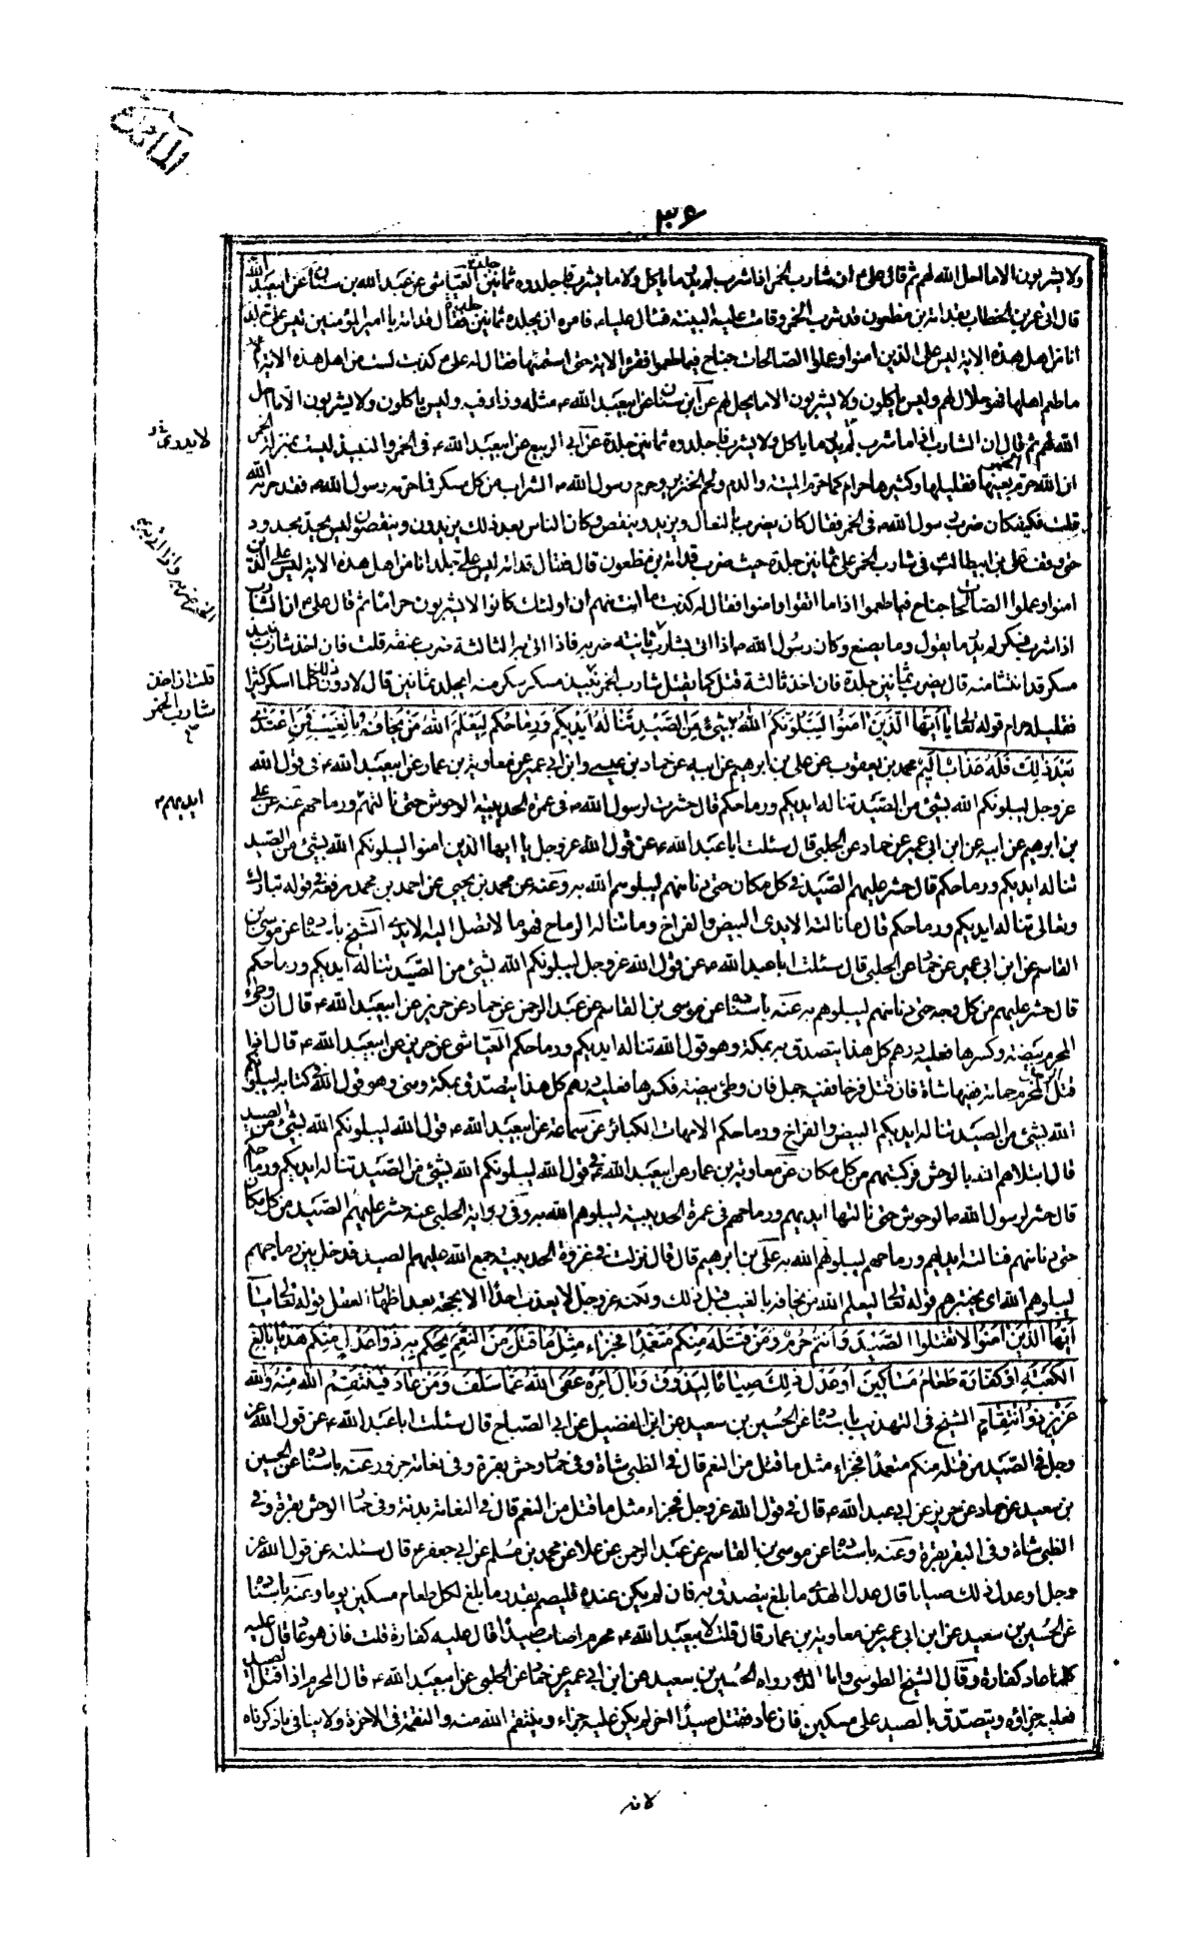 المائدة
٣٠٦
ولا يشربون الا ما احل الله لهم ثم قال على ع ان شارب الخمر اذا شرب لم يدر ما ياكل ولا ما يشرب فاجلدوه ثمانين جلدة العياشى عن عبد الله بن سنان عن ابيعبد الله
قال اتى عمر بن الخطاب بقدامة بن مظعون قد شرب الخمر وقامت عليه البينة فسئل عليا ع فامره ان يجلده ثمانين جلدة فقال قدامة يا امير المؤمنين ليس على جلد
انا من اهل هذه الاية ليس على الذين امنوا وعملوا الصالحات جناح فيما طعموا فقرء الاية حتى استتمها فقال له على ع كذبت لست من اهل هذه الاية
ما طعم اهلها فهو حلال لهم وليس ياكلون ولا يشربون الا ما يحل لهم عن ابن سنان عن ابيعبد الله ع مثله وزاد فيه وليس ياكلون ولا يشربون الا ما احل
الله لهم ثم قال ان الشارب اذا ما شرب لم يدر ما ياكل ولا يشرب فاجلدوه ثمانين جلدة عن ابى الربيع عن ابيعبد الله ع فى الخمر والنبيذ ليست بمنزلة الخمر
ان الله حرم الخمر بعينها فقليلها وكثيرها حرام كما حرم الميتة والدم ولحم الخنزير وحرم رسول الله ص الشراب من كل مسكر فما حرمه رسول الله ص فقد حرمه الله
قلت فكيف كان ضرب رسول الله ص فى الخمر فقال كان يضرب بالنعال ويزيد وينقص وكان الناس بعد ذلك يزيدون وينقصون ليس بحد محدود
حتى وقف على بن ابيطالب فى شارب الخمر على ثمانين جلدة حيث ضرب قدامة بن مظعون قال فقال قدامة ليس على جلد انا من اهل هذه الاية ليس على الذين
امنوا وعملوا الصالحات جناح فيما طعموا اذا ما اتقوا وامنوا فقال له كذبت ما انت منهم ان اولئك كانوا لا يشربون حراما ثم قال على ع ان الشارب
اذا شرب فسكر لم يدر ما يقول وما يصنع وكان رسول الله ص اذا اتى بشارب الخمر ضربه فاذا اتى به ثانية ضربه فاذا اتى به الثالثة ضرب عنقه قلت فان اخذ شارب نبيذ
مسكر قد انتشا منه قال يضرب ثمانين جلدة فان اخذ ثالثة قتل كما يقتل شارب الخمر نبيذ مسكر سكر منه ايجلد ثمانين قال لا دون ذلك كلما اسكر كثيره
فقليله حرام قوله تعالى يَا أَيُّهَا الَّذِينَ آمَنُوا لَيَبْلُوَنَّكُمُ اللهُ بِشَيْءٍ مِنَ الصَّيْدِ تَنَالُهُ أَيْدِيكُمْ وَرِمَاحُكُمْ لِيَعْلَمَ اللهُ مَنْ يَخَافُهُ بِالْغَيْبِ فَمَنِ اعْتَدَى
بَعْدَ ذَلِكَ فَلَهُ عَذَابٌ أَلِيمٌ محمد بن يعقوب عن على بن ابرهيم عن ابيه عن حماد بن عيسى وابن ابى عمير عن معاوية بن عمار عن ابيعبد الله ع فى قول الله
عز وجل ليبلونكم الله بشئ من الصيد تناله ايديكم ورماحكم قال حشرت لرسول الله ص فى عمرة الحديبية الوحوش حتى نالتهم ورماحهم عنه عن على
بن ابرهيم عن ابيه عن ابن ابى عمير عن حماد عن الحلبى قال سئلت ابا عبد الله ع عن قول الله عز وجل يا ايها الذين امنوا ليبلونكم الله بشئ من الصيد
تناله ايديكم ورماحكم قال حشر عليهم الصيد فى كل مكان حتى دنا منهم ليبلوهم الله به وعنه عن محمد بن يحيى عن احمد بن محمد رفعه فى قوله تبارك
وتعالى تناله ايديكم ورماحكم قال ما نالته الايدى البيض والفراخ وما تناله الرماح فهو ما لا تصل اليه الايدى الشيخ باسناده عن موسى بن
القاسم عن ابن ابى عمير عن حماد عن الحلبى قال سئلت ابا عبد الله ع عن قول الله عز وجل ليبلونكم الله بشئ من الصيد تناله ايديكم ورماحكم
قال حشر عليهم من كل وجه حتى دنا منهم ليبلوهم به عنه باسناده عن موسى بن القاسم عن عبد الرحمن عن حماد عن حريز عن ابيعبد الله ع قال ان وطئ
المحرم بيضة وكسرها فعليه درهم كل هذا يتصدق به بمكة وهو قول الله تناله ايديكم ورماحكم العياشى عن حريز عن ابيعبد الله ع قال اذا
قتل المحرم حمامة ففيها شاة فان قتل فرخا ففيه جمل فان وطئ بيضة فكسرها فعليه درهم كل هذا يتصدق بمكة ومنى وهو قول الله فى كتابه ليبلونكم
الله بشئ من الصيد تناله ايديكم البيض والفراخ ورماحكم الامهات الكبائر عن سماعة عن ابيعبد الله ع قول الله ليبلونكم الله بشئ من الصيد
قال ابتلاهم الله بالوحش فركبتهم من كل مكان عن معاوية بن عمار عن ابيعبد الله ع فى قول الله ليبلونكم الله بشئ من الصيد تناله ايديكم ورماحكم
قال حشر لرسول الله ص الوحوش حتى نالتها ايديهم ورماحهم فى عمرة الحديبية ليبلوهم الله به وفى رواية الحلبى عنه حشر عليهم الصيد من كل مكان
حتى دنا منهم فنالته ايديهم ورماحهم ليبلوهم الله به على بن ابرهيم قال قال نزلت فى غزوة الحديبية جمع الله عليهم الصيد فدخل بين رماحهم
ليبلوهم الله اى يختبرهم قوله تعالى ليعلم الله من يخافه بالغيب قبل ذلك ولكنه عز وجل لا يعذب احدا الا بحجة بعد اظهار الفعل قوله تعالى يَا
أَيُّهَا الَّذِينَ آمَنُوا لَا تَقْتُلُوا الصَّيْدَ وَأَنْتُمْ حُرُمٌ وَمَنْ قَتَلَهُ مِنْكُمْ مُتَعَمِّدًا فَجَزَاءٌ مِثْلُ مَا قَتَلَ مِنَ النَّعَمِ يَحْكُمُ بِهِ ذَوَا عَدْلٍ مِنْكُمْ هَدْيًا بَالِغَ
الْكَعْبَةِ أَوْ كَفَّارَةٌ طَعَامُ مَسَاكِينَ أَوْ عَدْلُ ذَلِكَ صِيَامًا لِيَذُوقَ وَبَالَ أَمْرِهِ عَفَى اللهُ عَمَّا سَلَفَ وَمَنْ عَادَ فَيَنْتَقِمُ اللهُ مِنْهُ وَاللهُ
عَزِيزٌ ذُو انْتِقَامٍ الشيخ فى التهذيب باسناده عن الحسين بن سعيد عن ابن الفضيل عن ابى الصباح قال سئلت ابا عبد الله ع عن قول الله عز
وجل فى الصيد من قتله منكم متعمدا فجزاء مثل ما قتل من النعم قال فى الظبى شاة وفى حمار وحش بقرة وفى نعامة جزور عنه باسناده عن الحسين
بن سعيد عن حماد عن حريز عن ابى عبد الله ع قال فى قول الله عز وجل فجزاء مثل ما قتل من النعم قال فى النعامة بدنة وفى حمار الوحش بقرة وفى
الظبى شاة وفى البقر بقرة وعنه باسناده عن موسى بن القاسم عن عبد الرحمن عن علا عن محمد بن مسلم عن ابى جعفر ع قال سئلته عن قول الله عز
وجل او عدل ذلك صياما قال عدل الهدى ما بلغ يتصدق به فان لم يكن عنده فليصم بقدر ما بلغ لكل طعام مسكين يوما وعنه باسناده
عن الحسين بن سعيد عن ابن ابى عمير عن معاوية بن عمار قال قلت لابيعبد الله ع محرم اصاب صيدا قال عليه كفارة قلت فان هو عاد قال عليه
كلما عاد كفارة وقال الشيخ الطوسى واما الذى رواه الحسين بن سعيد عن ابن ابى عمير عن حماد عن الحلبى عن ابيعبد الله ع قال المحرم اذا قتل الصيد
فعليه جزاؤه ويتصدق بالصيد على مسكين فان عاد فقتل صيدا اخر لم يكن عليه جزاء وينتقم الله منه والنقمة فى الاخرة ولا ينافى ما ذكرناه
لا يدرى
قلت ان اخذ
شارب الخمر
ايديهم
لانه